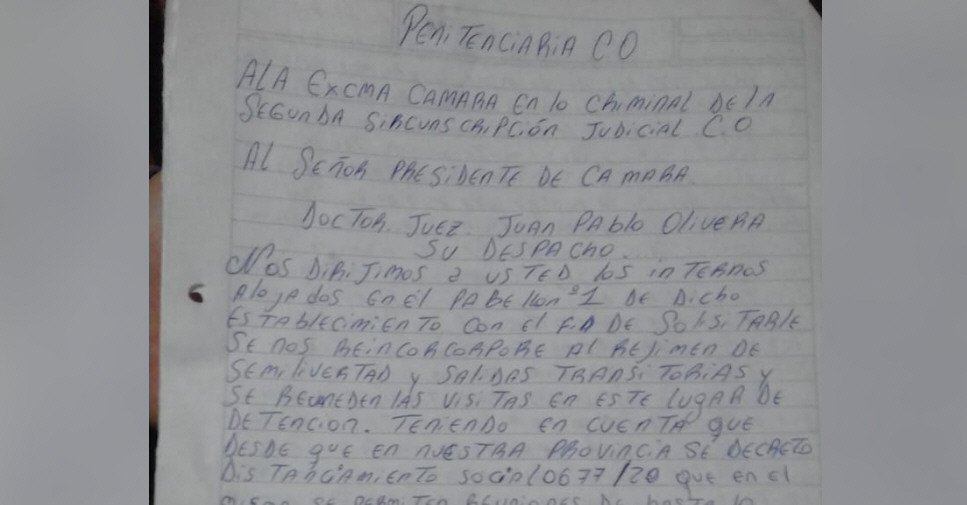 PENITENCIARIA C O
ALA EXCMA CAMARA En lo CRIMINAL DE lA
SEGUNDA SIRCUNSCRIPCIÓN JUDICIAL C.O
Al SEÑOR PRESIDENTE DE CAMARA
DOCTOR. JUEZ. JUAN PABlo OliVERA
SU DESPACHO.
NOS DIRIJIMOS a USTED los inTERNOS
AlojAdos En El PABEllon º1 DE Dicho
ESTABLECIMIENTO Con El F.D DE SolisiTARlE
SE nos REinCORCORPORE Al REJIMEN DE
SEMILIVERTAD y SALIDAS TRANSITORIAS y
SE REUMEDEN lAS VISITAS En ESTE LUGAR DE
DETENCION. TENIENDO En CUENTA QUE
DESDE QUE En NUESTRA PROVINCIA SE DECRETO
DISTANCIAMIENTO SOCIAl 0677/20 QUE En El
SE PERMITEN REUNIONES DE hASTA